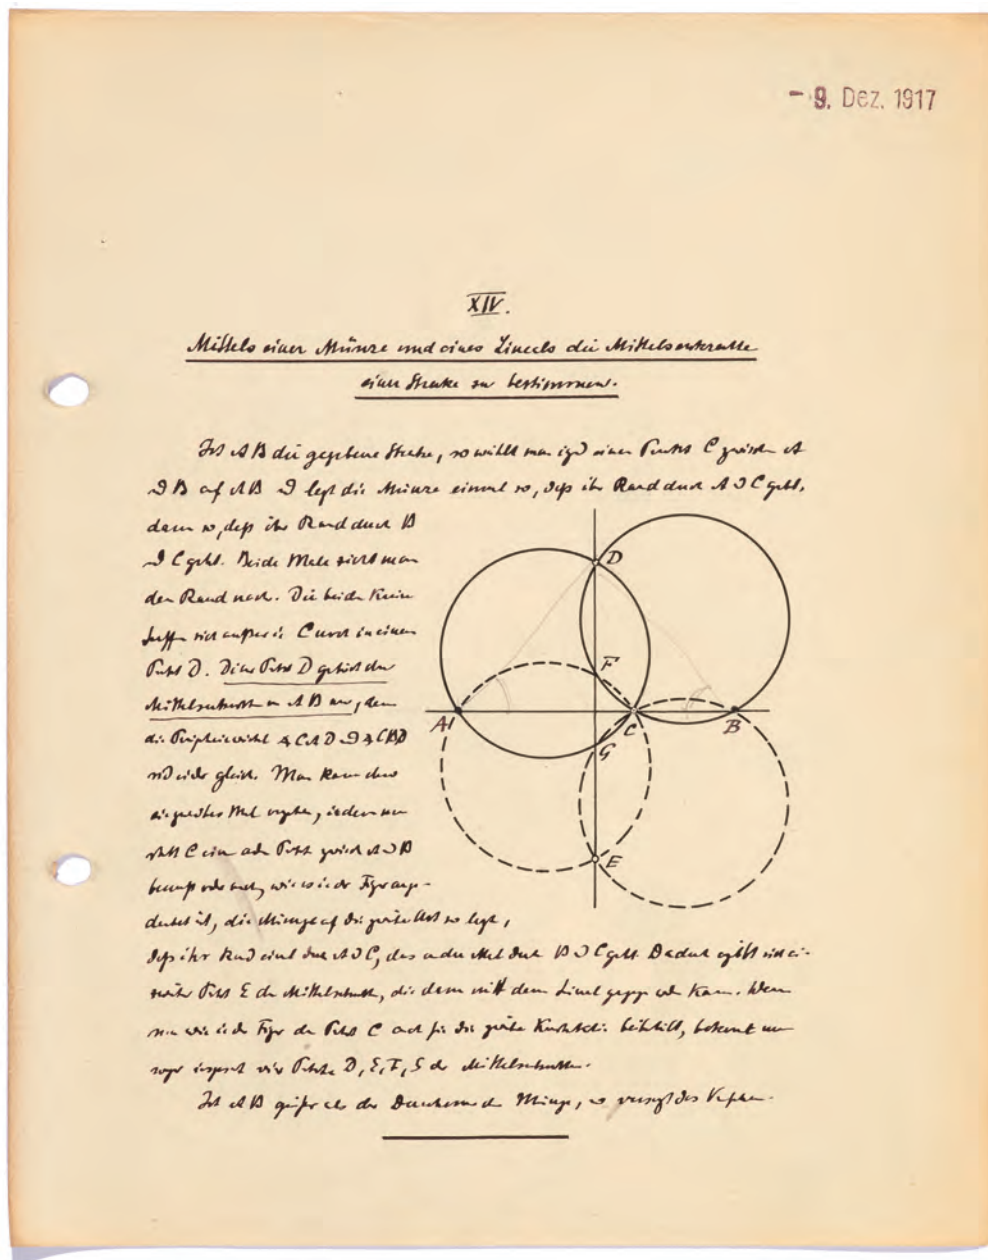 - 9. Dez. 1917
XIV.
Mittels einer Münze und eines Lineals die Mittelsenkrechte
einer Strecke zu bestimmen.
Ist AB die gegebene Strecke, so wählt man einen Punkt C zwischen A
B auf AB legt die Münze einmal so, daß ihr Rand durch A C geht,
dann so, daß ihr Rand durch B
C geht. Beide Male zieht man
den Rand nach. Die beiden Kreise
treffen sich außer in C noch in einem
Punkt D. Dieser Punkt D gehört der
Mittelsenkrechten von AB an, denn
die ∢ CAD ∢ CBD
sind gleich. Man kann
ein zweites Mal, indem man
statt C einen Punkt zwischen A B
oder auch, wie es in der Figur ange-
deutet ist, die Münze auf die zweite Art so legt,
daß ihr Rand einmal durch A C, das andere Mal durch B C geht. Dadurch ergibt sich ein
zweiter Punkt E der Mittelsenkrechten, die dann mit dem Lineal gezogen werden kann. Wenn
man wie in der Figur den Punkt C auch für die zweite beibehält, bekommt man
sogar insgesamt vier Punkte D, E, F, G der Mittelsenkrechten.
Ist AB größer als der Durchmesser der Münze, so versagt das Verfahren.
D
F
A
C
B
G
E